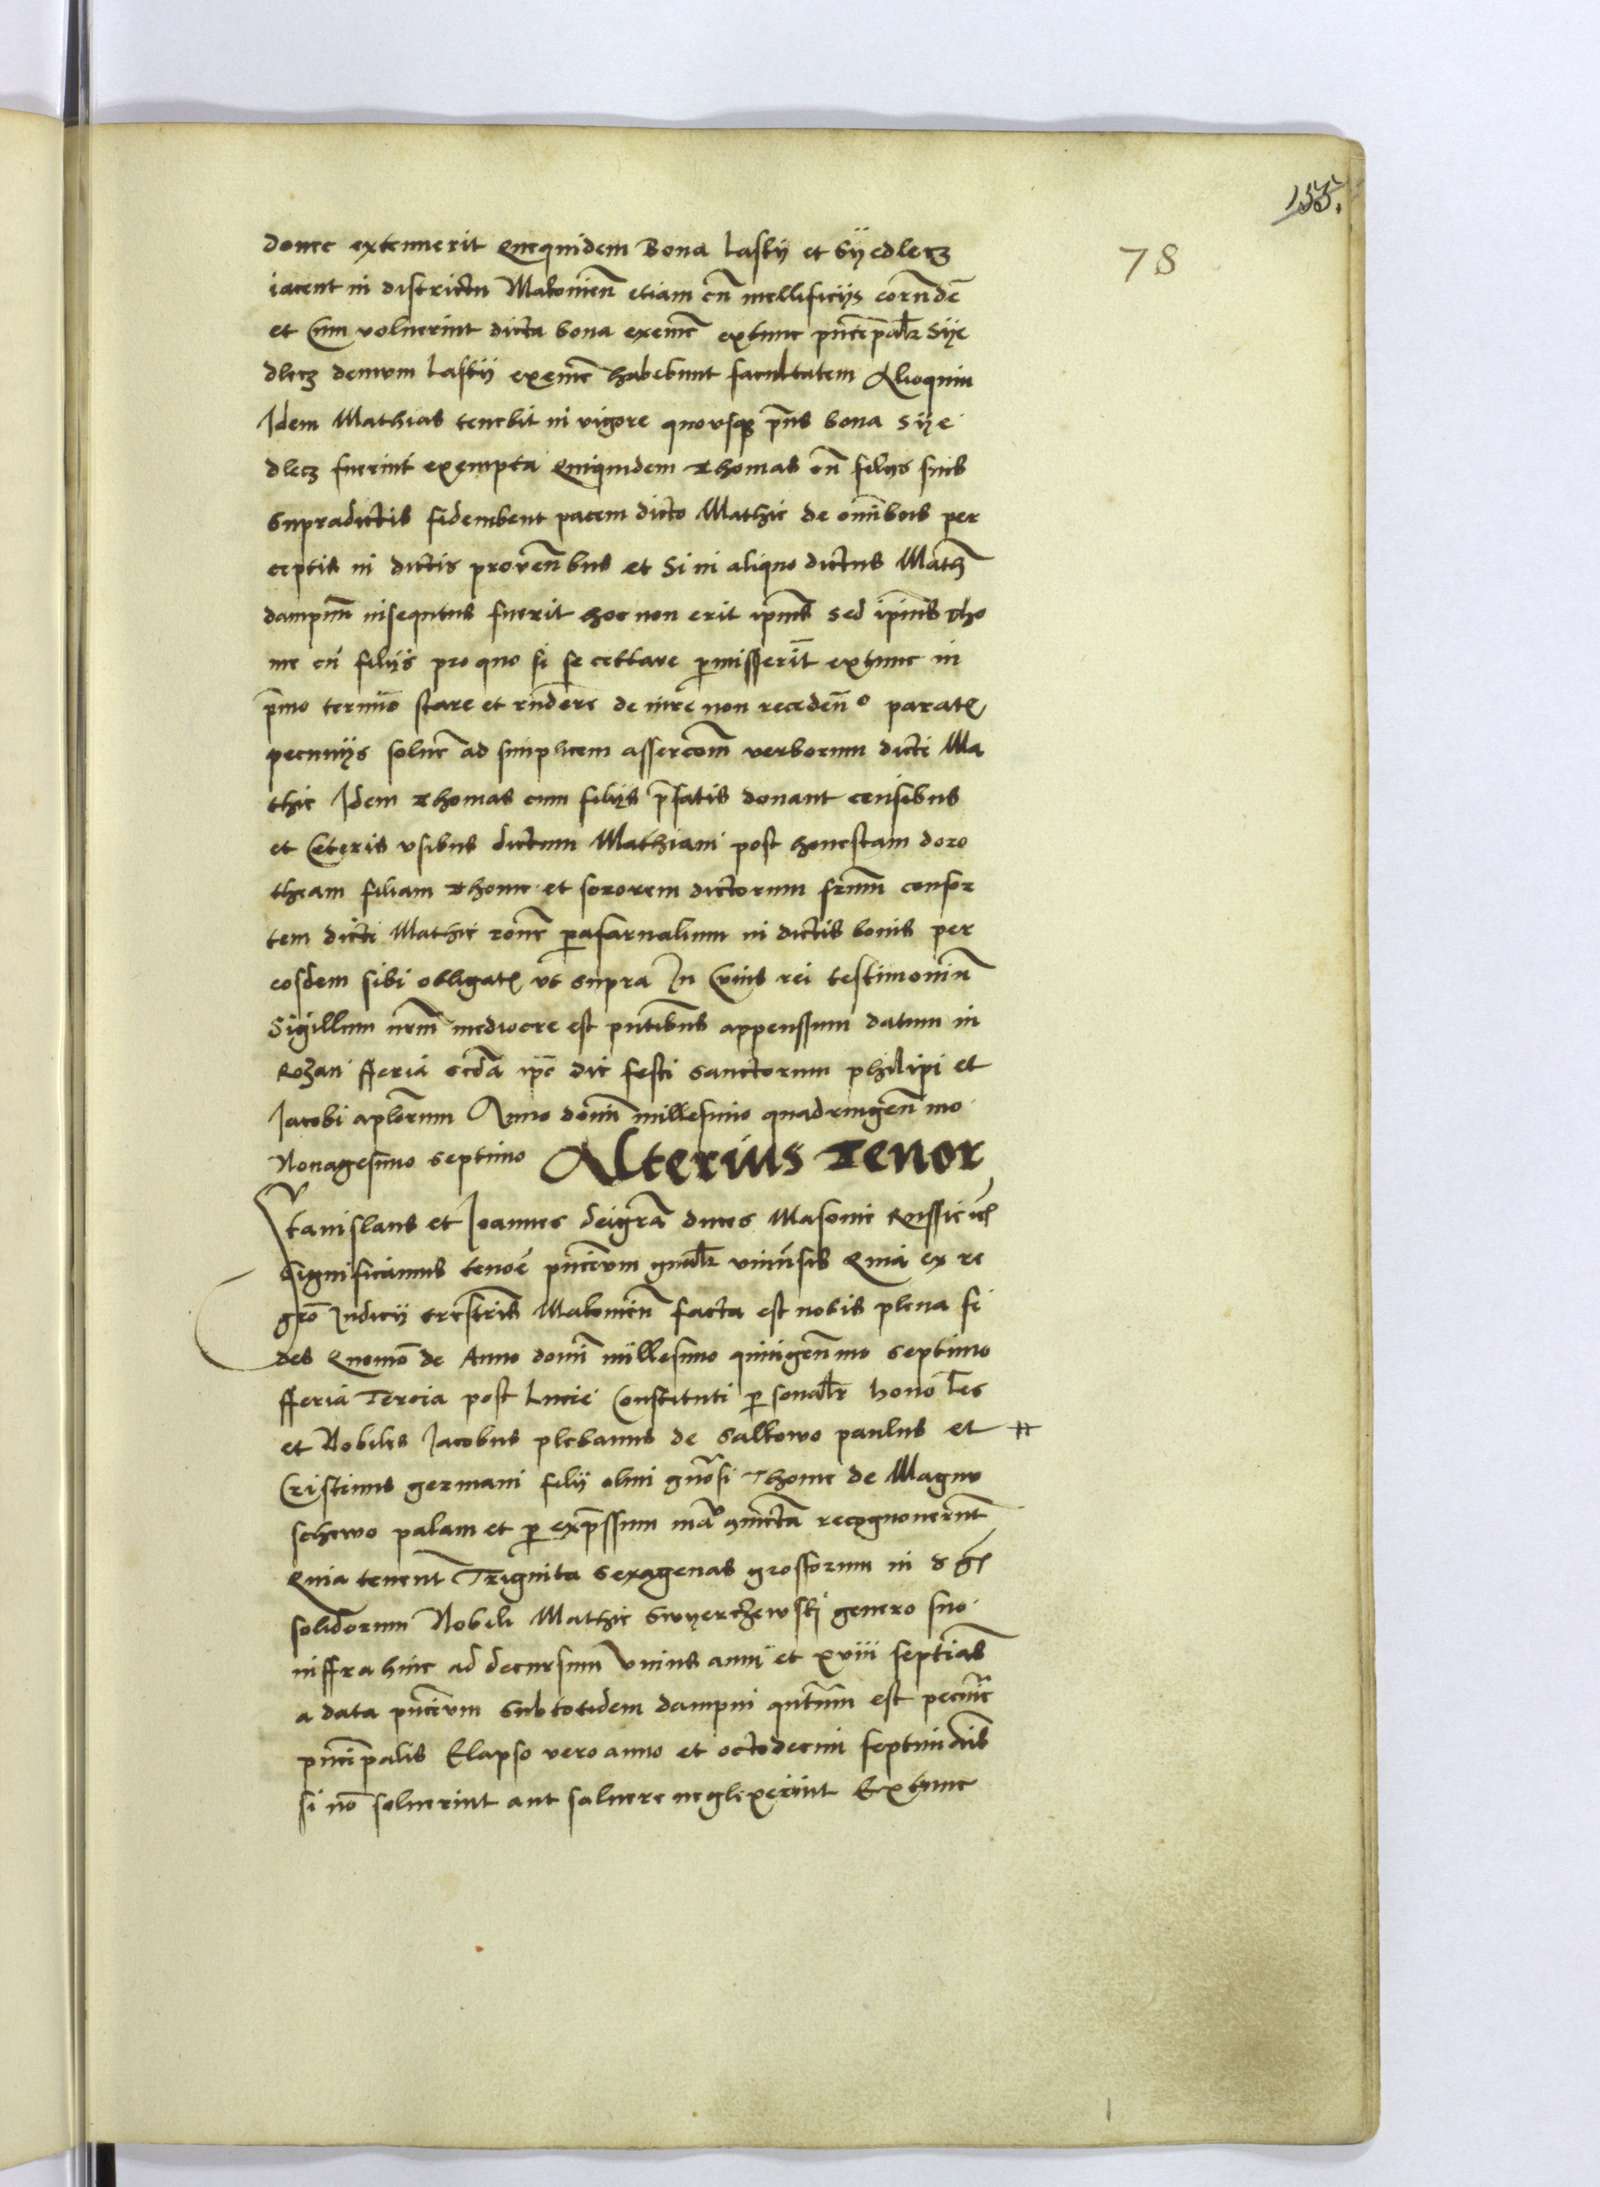 155.
78
donec extenuerit Quequidem Bona Lasky et Syedlecz
iacent in districtu Makowien̄ etiam cū mellificijs eorundē
et Cum voluerint dicta bona exemē extunc pn̄cipalr̄ Sye
dlecz demum Lasky exemē habebunt facultatem Alioquin
Idem Mathias tenebit in vigore quousq p̄ns bona Sye
dlecz fuerint exempta Quiquidem Thomas cū filijs suis
Supradictis fidemhent pacem dicto Mathie de om̄ibus per
ceptis in dictis proven̄bus et Si in aliquo dictus Math
dampnū insequtus fuerit hoc non erit ipius sed ipius Tho
me cū filijs pro quo si se cettare permisserīt extunc in
p̄mo termīo stare et rn̄dere de iure non recedendo parat
pecunijs solue ad simplicem assercōm verborum dicti Ma
thie Idem Thomas cum filijs p̄fatis donant censibus
et Ceteris vsibus dictum Mathiam post honestam doro
theam filiam Thome et sororem dictorum frūm consor
tem dicti Mathie rōne parafarnalium in dictis bonis per
eosdem sibi obligat vt supra In Cuius rei testimoniū
Sigillum nr̄m mediocre est pn̄tibus appenssum datum in
Rozan fferia scdā ipē die festi sanctorum philipi et
Jacobi aplorum Anno domī millesimo quadringen̄mo
Nonagesimo septimo Alterius Tenor
Stanislaus et Joannes deigrā duces Masouie Russie
Significamus tenoē pn̄cium gn̄alr̄ vniūsis Quia ex re
gr̄o Judicij trēstris Makowien̄ facta est nobis plena fi
des Quomō de Anno domī millesimo quingen̄mo septimo
fferia Tercia post Lucie Constituti personalr̄ hono les
et Nobiles Jacobus plebanus de Salkowo paulus et #
Cristinus germani filij olim gn̄osi Thome de Magnu
schewo palam et per exp̄ssum recognouerunt
Quia tenent Trigīnta sexagenas grossorum in
solidorum Nobili Mathie Swyerczewski genero suo
inffra hinc ad decursum vnius anni et xviii septias
a data pn̄cium Sub totidem dampni qn̄tum est pecunie
pn̄cipalis Elapso vero anno et octodecim septimanis
si nō soluerint aut saluere neglexerint Extunc